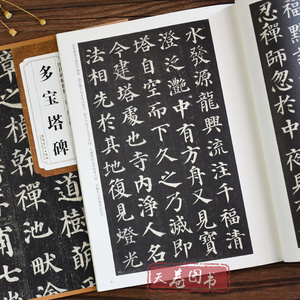 多宝塔碑
忍禪師忽於
水發源龍興流注千福清
澄泛灩中有方舟又見寶
塔自空而下久之乃滅即
今建塔處也寺內淨人名
法相先於其地復見燈光
道樹萌
章之楨幹禪池畎澮
图书